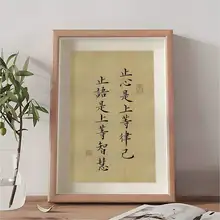 止心是上等律己
止語是上等智慧